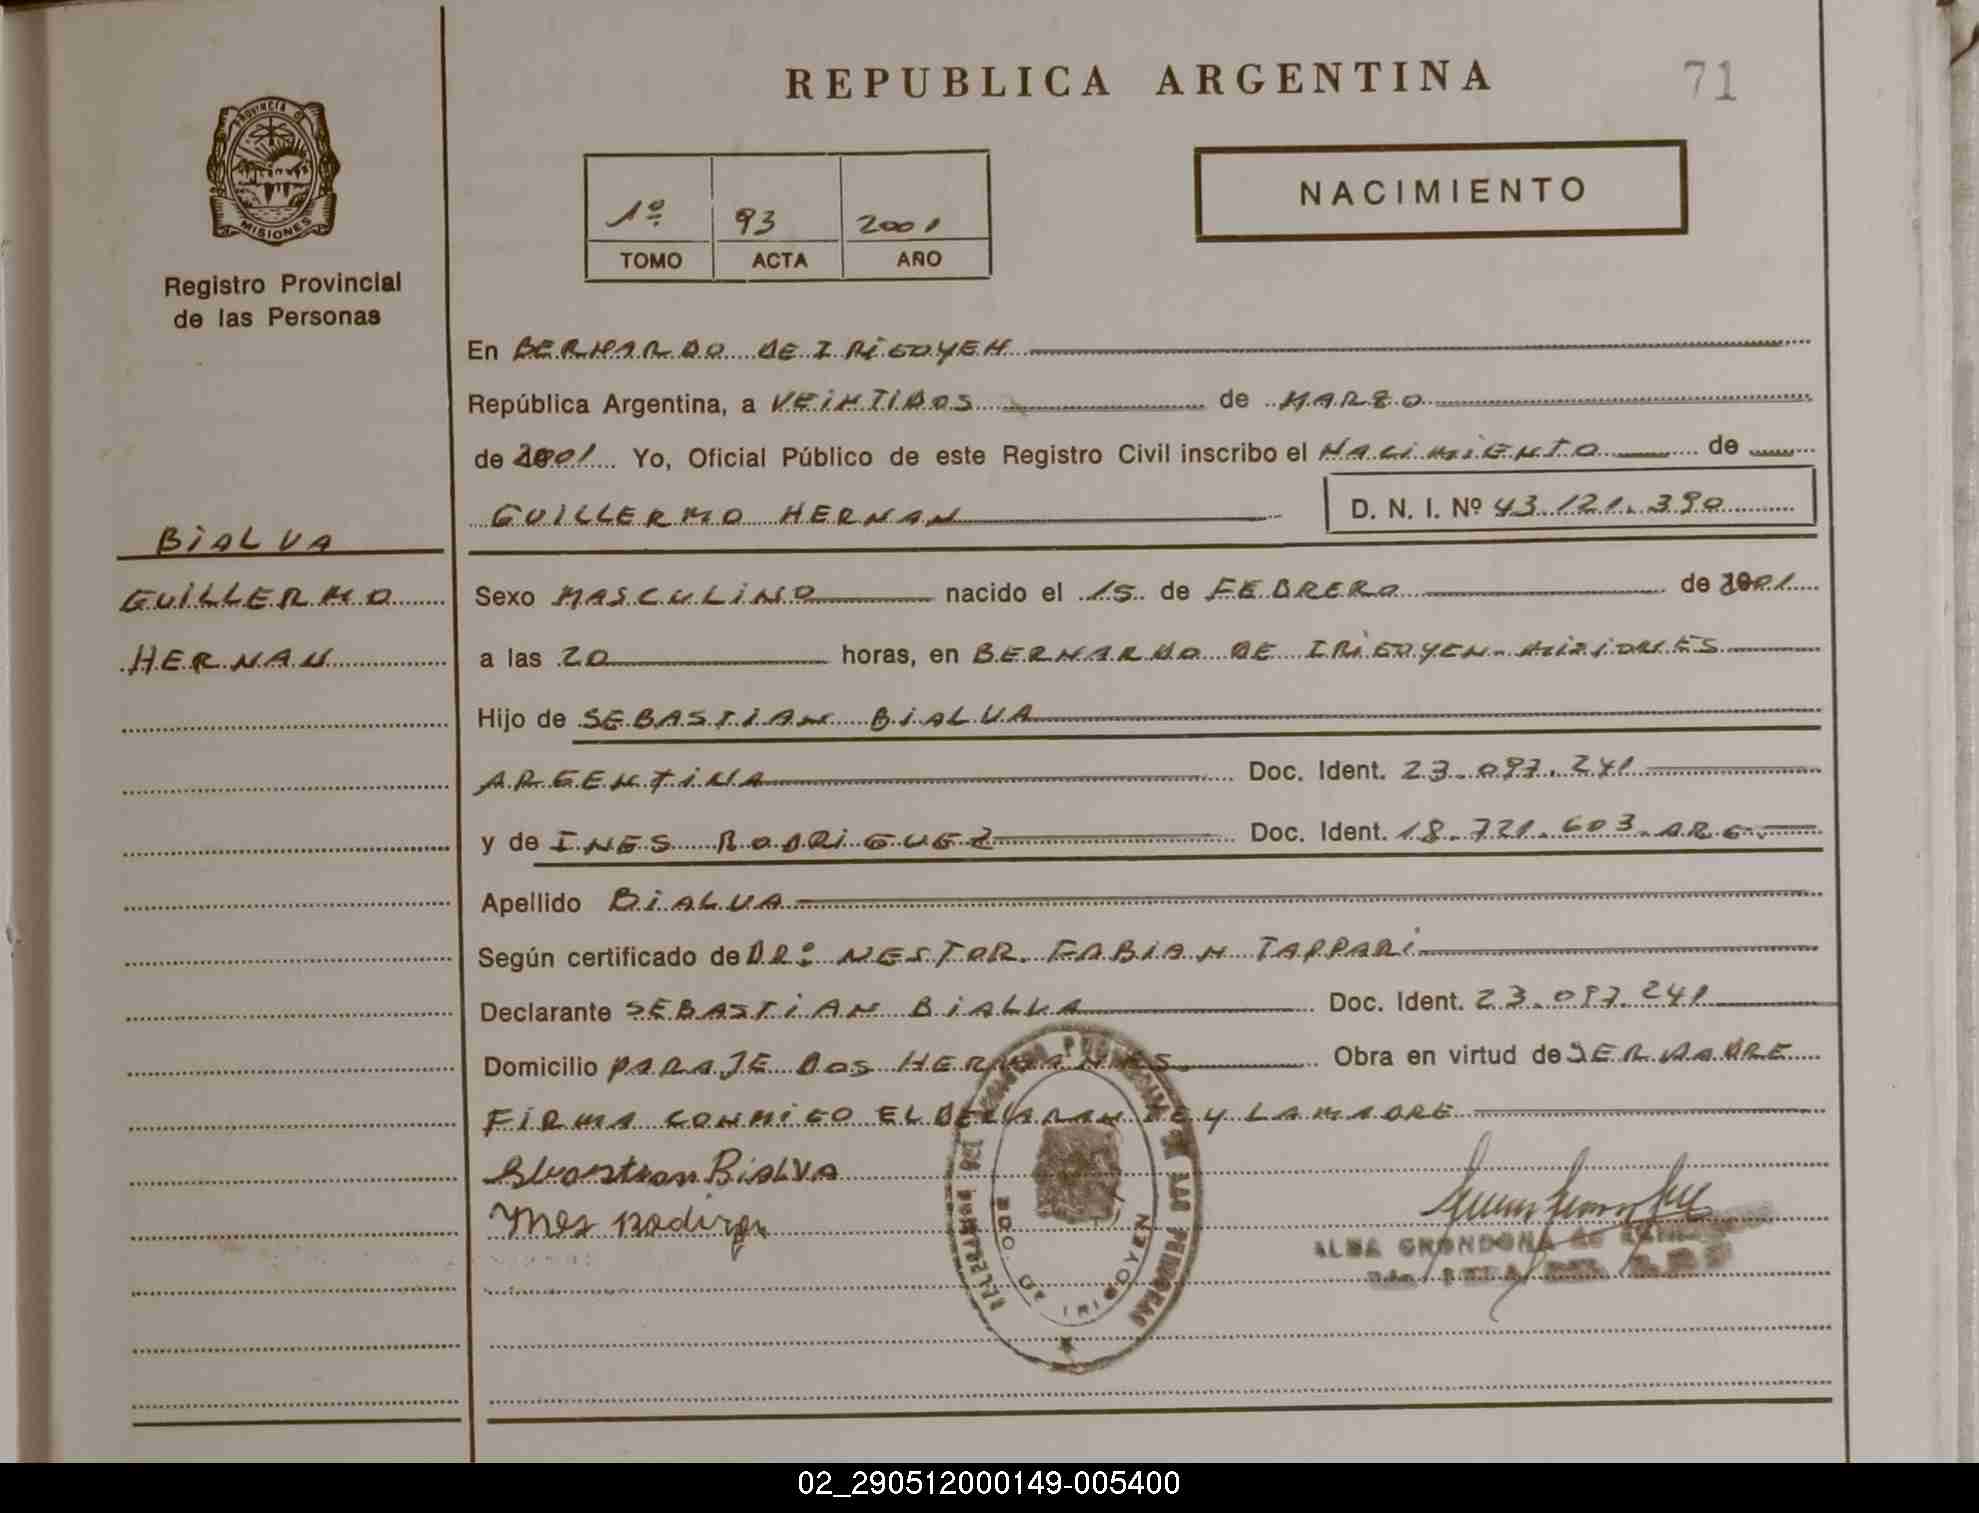 REPUBLICA ARGENTINA
71
PROVINCIA DE
MISIONES
Registro Provincial
de las Personas
1º 93 2001
TOMO ACTA AÑO
NACIMIENTO
En BERNARDO DE IRIGOYEN
República Argentina, a VEINTIDOS de MARZO
de 2001 Yo, Oficial Público de este Registro Civil inscribo el NACIMIENTO de
GUILLERMO HERNAN D. N. I. Nº 43.121.390
BIALVA
GUILLERMO
HERNAN
Sexo MASCULINO nacido el 15 de FEBRERO de 2001
a las 20 horas, en BERNARDO DE IRIGOYEN-MISIONES
Hijo de SEBASTIAN BIALVA
ARGENTINA Doc. Ident. 23.097.241
y de INES RODRIGUEZ Doc. Ident. 18.721.603.ARG.
Apellido BIALVA
Según certificado de DR: NESTOR FABIAN TAPPARI
Declarante SEBASTIAN BIALVA Doc. Ident. 23.097.241
Domicilio PARAJE DOS HERMANAS Obra en virtud de SER PADRE
FIRMA CONMIGO EL DECLARANTE Y LA MADRE
BIALVA
Ines
ALBA GRONDONA de
BDO. DE IRIGOYEN
DE LAS PERSONAS
02_290512000149-005400